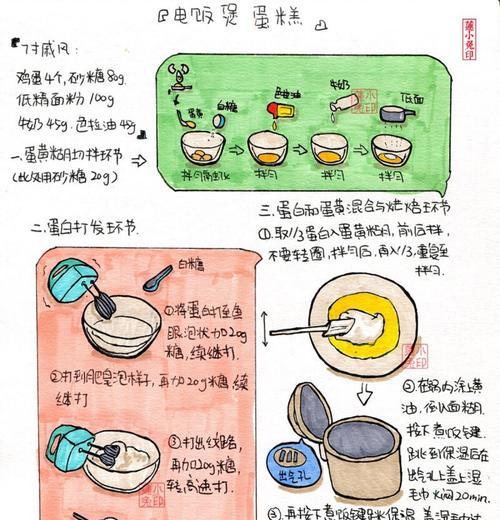 电饭煲蛋糕
7寸戚风:
鸡蛋4个,砂糖80g
低精面粉100g
牛奶45g.色拉油45g
一.蛋黄糊切拌环节
(此处用砂糖20g)
蛋黄
白糖
色拉油
牛奶
低面
拌匀
拌匀
拌匀
二.蛋白打发环节
白糖
①将蛋白打至鱼
眼泡状加20g
糖,续继打.
②打到肥皂泡样子,再加20g糖续
继打
③打出纹路,
再加20g糖,
转高速打.
三.蛋白和蛋黄混合与烘焙环节
①取1/3蛋白入蛋黄糊,前后拌,
不要转圈,拌匀后,再入1/3,重复至
拌匀.
②在锅内涂上黄
油,倒入面糊.
按下煮饭键.
跳到保温后在
出气孔上盖上湿
毛巾火闷20min.
出气孔
③再按下煮饭键跳保温